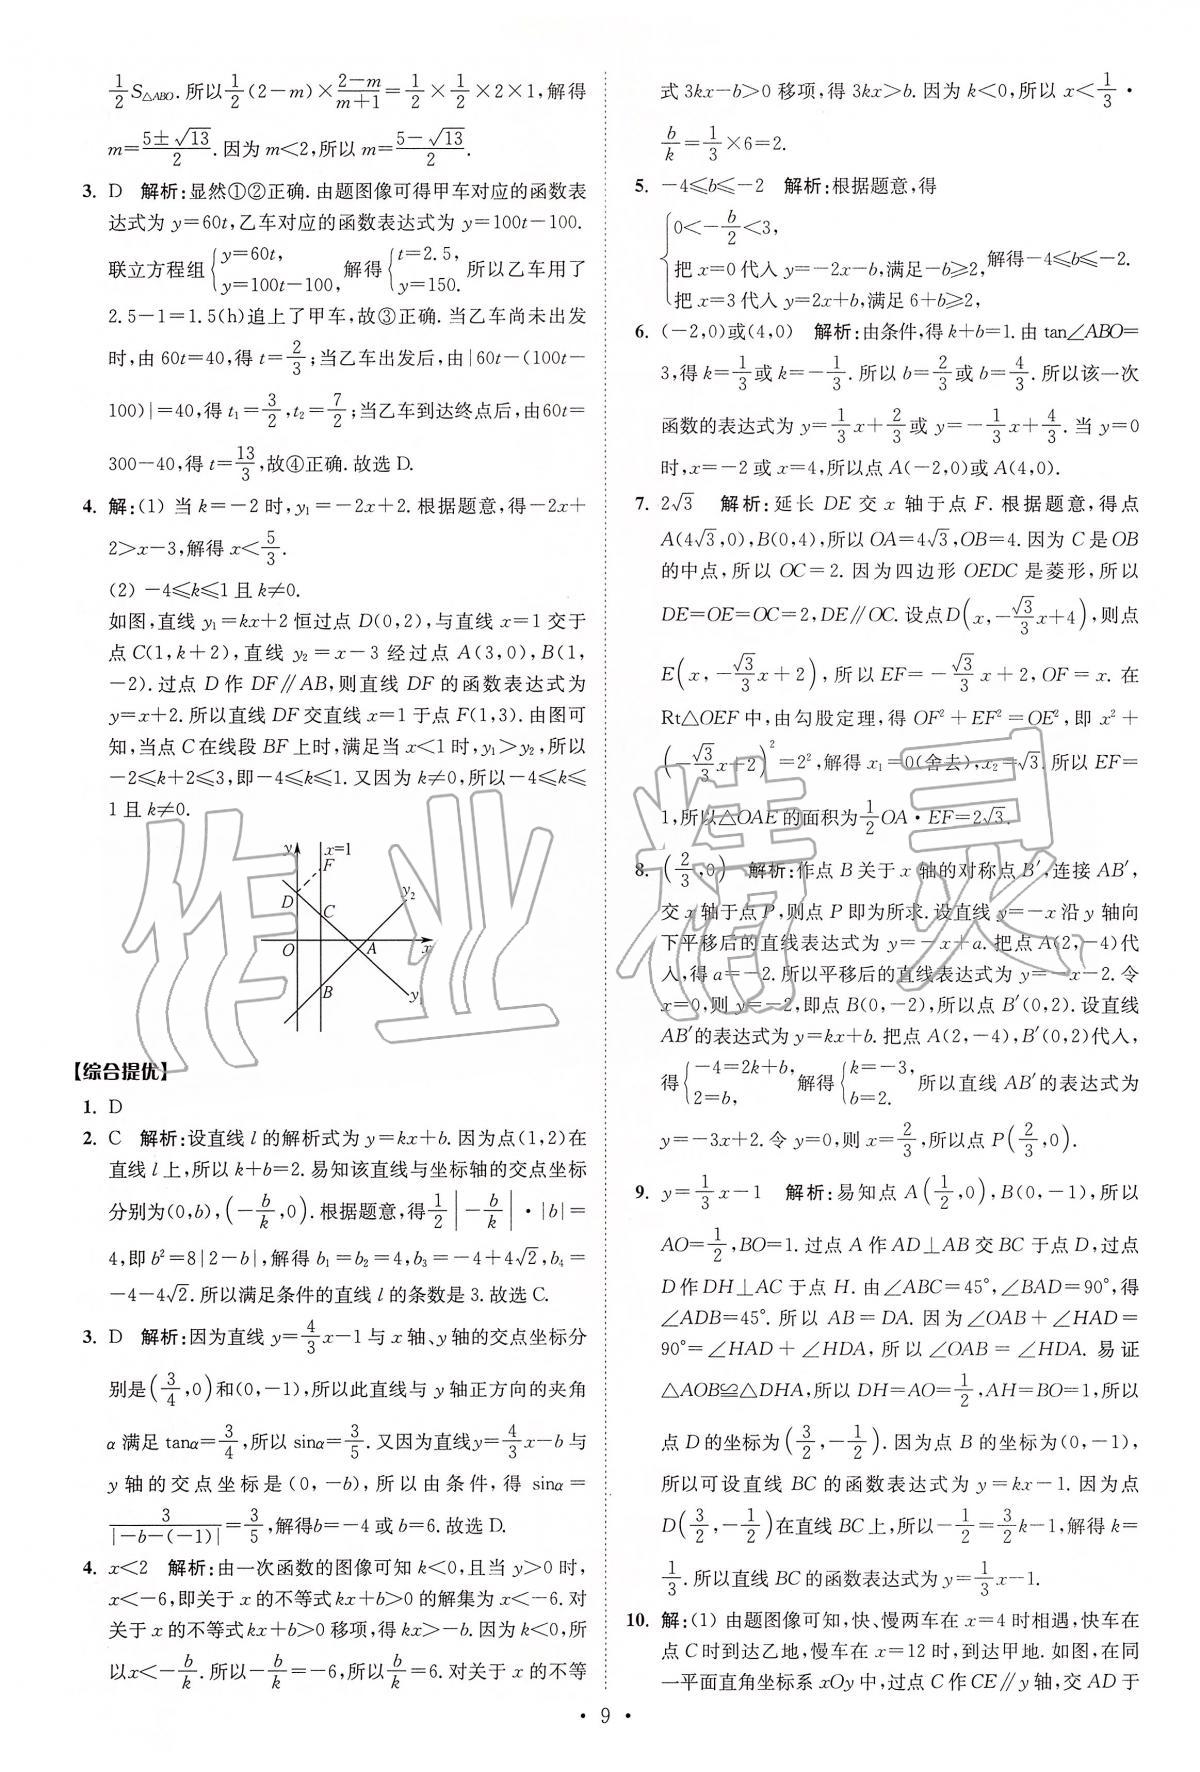 1/2 S△ABO. 所以 1/2 (2-m)× (2-m)/(m+1) = 1/2 × 1/2 ×2×1, 解得
m= (5±√13)/2. 因为 m<2, 所以 m= (5-√13)/2.
3. D 解析:显然①②正确. 由题图像可得甲车对应的函数表
达式为 y=60t, 乙车对应的函数表达式为 y=100t-100.
联立方程组{y=60t, y=100t-100, 解得{t=2.5, y=150. 所以乙车用了
2.5-1=1.5(h)追上了甲车,故③正确. 当乙车尚未出发
时,由 60t=40,得 t= 2/3;当乙车出发后,由|60t-(100t-
100)|=40,得 t₁= 3/2, t₂= 7/2;当乙车到达终点后,由60t=
300-40,得 t= 13/3,故④正确. 故选 D.
4. 解:(1) 当 k=-2 时, y₁=-2x+2. 根据题意,得-2x+
2>x-3,解得 x< 5/3.
(2) -4≤k≤1 且 k≠0.
如图,直线 y₁=kx+2 恒过点 D(0,2),与直线 x=1 交于
点 C(1,k+2),直线 y₂=x-3 经过点 A(3,0),B(1,
-2). 过点 D 作 DF∥AB,则直线 DF 的函数表达式为
y=x+2. 所以直线 DF 交直线 x=1 于点 F(1,3). 由图可
知,当点 C 在线段 BF 上时,满足当 x<1 时, y₁>y₂,所以
-2≤k+2≤3,即-4≤k≤1. 又因为 k≠0,所以-4≤k≤
1 且 k≠0.
y x=1
F
D C y₂
O A x
B y₁
【综合提优】
1. D
2. C 解析:设直线 l 的解析式为 y=kx+b. 因为点(1,2)在
直线 l 上,所以 k+b=2. 易知该直线与坐标轴的交点坐标
分别为(0,b),(-b/k,0). 根据题意,得 1/2 |-b/k|·|b|=
4,即 b²=8|2-b|,解得 b₁=b₂=4,b₃=-4+4√2,b₄=
-4-4√2. 所以满足条件的直线 l 的条数是 3. 故选 C.
3. D 解析:因为直线 y= 4/3 x-1 与 x 轴、y 轴的交点坐标分
别是(3/4,0)和(0,-1),所以此直线与 y 轴正方向的夹角
α 满足 tanα= 3/4,所以 sinα= 3/5. 又因为直线y= 4/3 x-b 与
y 轴的交点坐标是(0,-b),所以由条件,得 sinα=
3/|-b-(-1)| = 3/5,解得b=-4 或 b=6. 故选 D.
4. x<2 解析:由一次函数的图像可知 k<0,且当 y>0 时,
x<-6,即关于 x 的不等式 kx+b>0 的解集为 x<-6. 对
关于 x 的不等式 kx+b>0 移项,得 kx>-b. 因为 k<0,所
以x<-b/k. 所以-b/k=-6,所以 b/k=6. 对关于 x 的不等
式 3kx-b>0 移项,得 3kx>b. 因为 k<0,所以 x< 1/3 ·
b/k = 1/3 ×6=2.
5. -4≤b≤-2 解析:根据题意,得
{0<-b/2<3,
把 x=0 代入 y=-2x-b,满足-b≥2, 解得-4≤b≤-2.
把 x=3 代入 y=2x+b,满足 6+b≥2,
6. (-2,0)或(4,0) 解析:由条件,得 k+b=1. 由 tan∠ABO=
3,得 k= 1/3 或 k=-1/3. 所以 b= 2/3 或 b= 4/3. 所以该一次
函数的表达式为 y= 1/3 x+ 2/3 或 y=-1/3 x+ 4/3. 当 y=0
时,x=-2 或 x=4,所以点 A(-2,0)或 A(4,0).
7. 2√3 解析:延长 DE 交 x 轴于点 F. 根据题意,得点
A(4√3,0),B(0,4),所以 OA=4√3,OB=4. 因为 C 是 OB
的中点,所以 OC=2. 因为四边形 OEDC 是菱形,所以
DE=OE=OC=2,DE∥OC. 设点D(x,-√3/3 x+4),则点
E(x,-√3/3 x+2),所以 EF=-√3/3 x+2,OF=x. 在
Rt△OEF 中,由勾股定理,得 OF²+EF²=OE²,即 x²+
(-√3/3 x+2)²=2²,解得 x₁=0(舍去),x₂=√3. 所以 EF=
1,所以△OAE 的面积为 1/2 OA·EF=2√3.
8. (2/3,0) 解析:作点 B 关于 x 轴的对称点 B′,连接 AB′,
交 x 轴于点 P,则点 P 即为所求. 设直线 y=-x 沿 y 轴向
下平移后的直线表达式为 y=-x+a. 把点 A(2,-4)代
入,得 a=-2. 所以平移后的直线表达式为 y=-x-2. 令
x=0,则 y=-2,即点 B(0,-2),所以点 B′(0,2). 设直线
AB′的表达式为 y=kx+b. 把点 A(2,-4),B′(0,2)代入,
得{-4=2k+b, 2=b, 解得{k=-3, b=2. 所以直线 AB′的表达式为
y=-3x+2. 令 y=0,则 x= 2/3,所以点 P(2/3,0).
9. y= 1/3 x-1 解析:易知点 A(1/2,0),B(0,-1),所以
AO= 1/2,BO=1. 过点 A 作 AD⊥AB 交 BC 于点 D,过点
D 作 DH⊥AC 于点 H. 由∠ABC=45°,∠BAD=90°,得
∠ADB=45°. 所以 AB=DA. 因为∠OAB+∠HAD=
90°=∠HAD+∠HDA,所以∠OAB=∠HDA. 易证
△AOB≌△DHA,所以 DH=AO= 1/2,AH=BO=1,所以
点 D 的坐标为(3/2,-1/2). 因为点 B 的坐标为(0,-1),
所以可设直线 BC 的函数表达式为 y=kx-1. 因为点
D(3/2,-1/2)在直线 BC 上,所以-1/2 = 3/2 k-1,解得 k=
1/3. 所以直线 BC 的函数表达式为 y= 1/3 x-1.
10. 解:(1) 由题图像可知,快、慢两车在 x=4 时相遇,快车在
点 C 时到达乙地,慢车在 x=12 时,到达甲地. 如图,在同
一平面直角坐标系 xOy 中,过点 C 作 CE∥y 轴,交 AD 于
· 9 ·
作业精灵